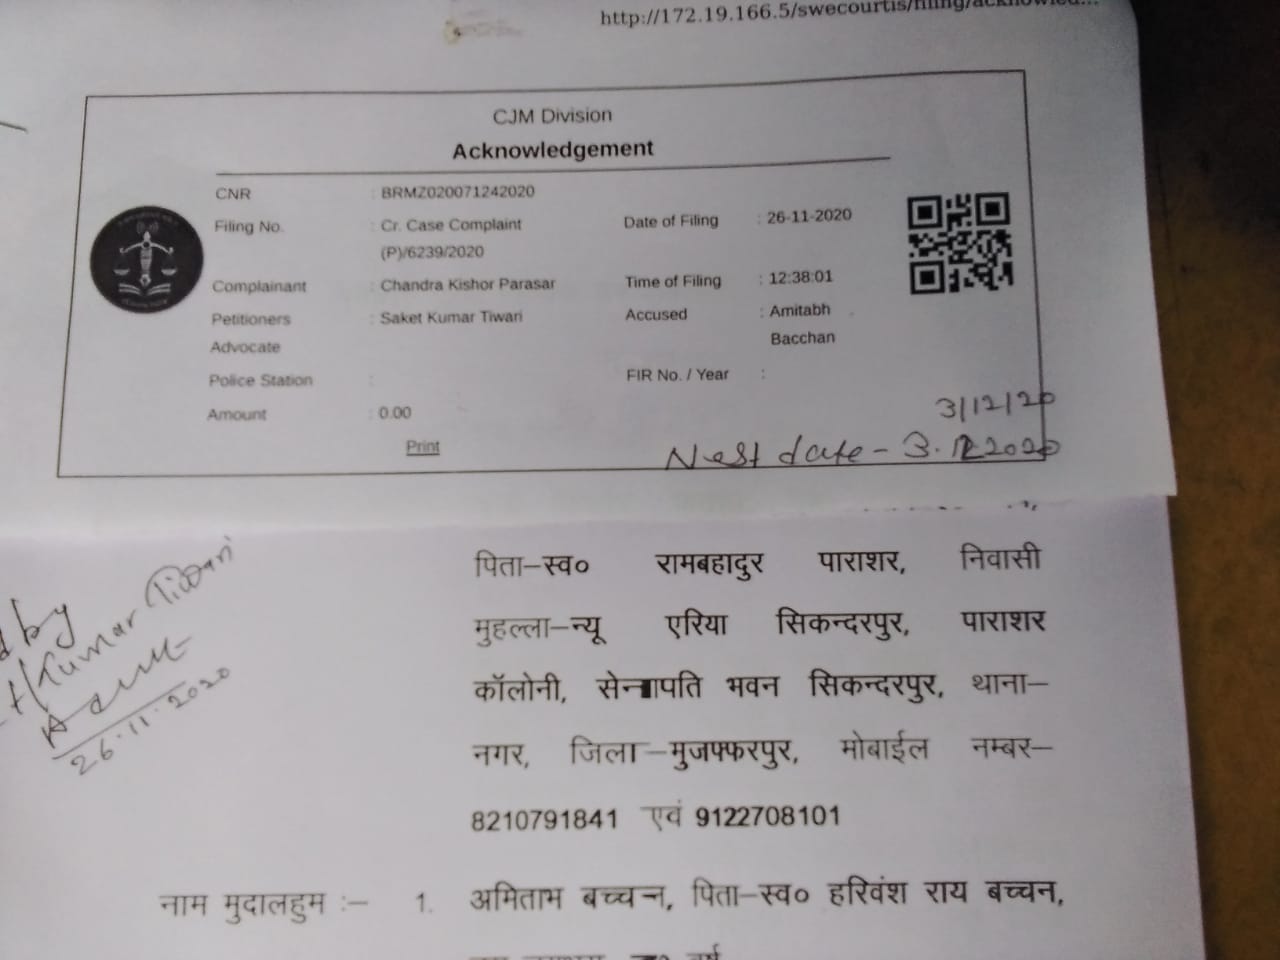 http://172.19.166.5/swecourtis/filing/acknowled...
CJM Division
Acknowledgement
CNR : BRMZ020071242020
Filing No. : Cr. Case Complaint (P)/6239/2020
Date of Filing : 26-11-2020
Complainant : Chandra Kishor Parasar
Time of Filing : 12:38:01
Petitioners Advocate : Saket Kumar Tiwari
Accused : Amitabh Bacchan
Police Station :
FIR No. / Year :
Amount : 0.00
Print
3/12/20
Next date - 3.12.2020
पिता–स्व० रामबहादुर पाराशर, निवासी
मुहल्ला–न्यू एरिया सिकन्दरपुर, पाराशर
कॉलोनी, सेनापति भवन सिकन्दरपुर, थाना–
नगर, जिला–मुजफ्फरपुर, मोबाईल नम्बर–
8210791841 एवं 9122708101
by
Kumar Tiwari
26.11.2020
नाम मुदालहुम :– 1. अमिताभ बच्चन, पिता–स्व० हरिवंश राय बच्चन,